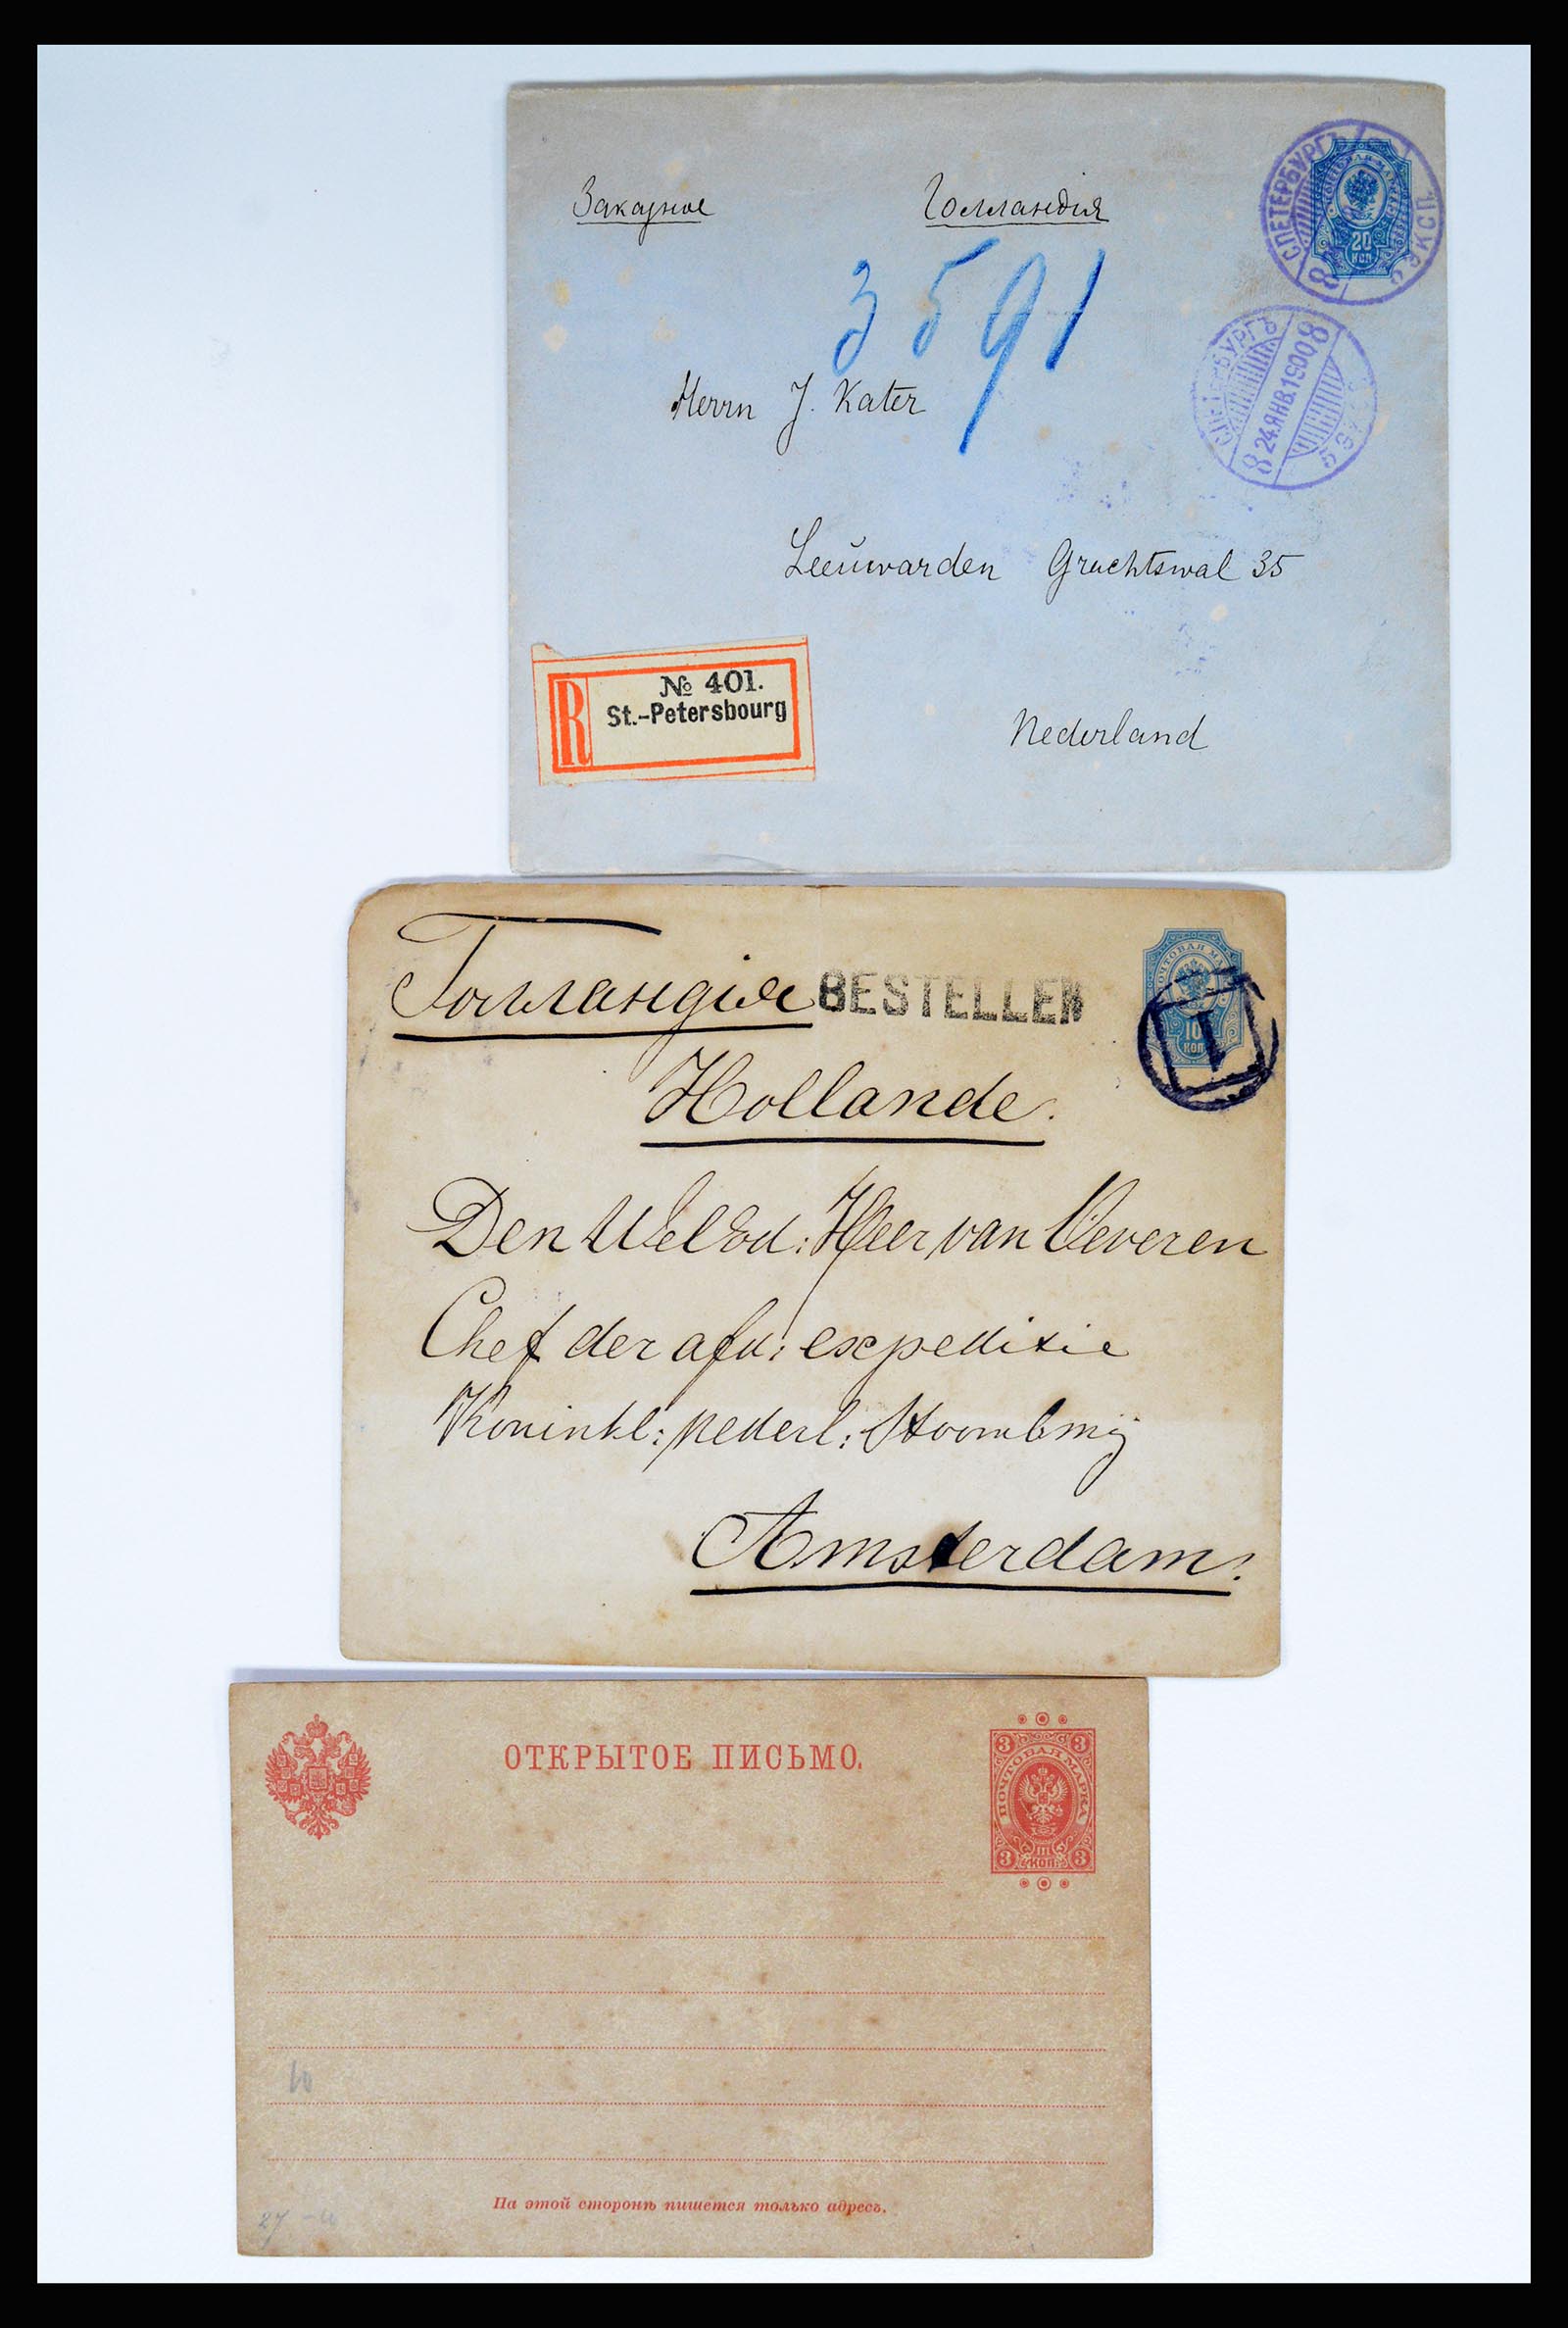 Заказное Голландія
3591
С.ПЕТЕРБУРГЪ
8 ЭКСП.
20 КОП.
С.ПЕТЕРБУРГЪ
8 24.ЯНВ.1900 8
5 ЭКСП.
Herrn J. Kater
Leeuwarden Grachtswal 35
R № 401.
St.-Petersbourg
Nederland
Голландія BESTELLEN
ПОЧТОВАЯ МАРКА
10 КОП.
1
Hollande.
Den WelEd: Heer van Beveren
Chef der afd: expeditie
Koninkl: Nederl: Stoombmij
Amsterdam.
ОТКРЫТОЕ ПИСЬМО.
3 3
ПОЧТОВАЯ МАРКА
III
3 КОП. 3
10
На этой сторонѣ пишется только адресъ.
27